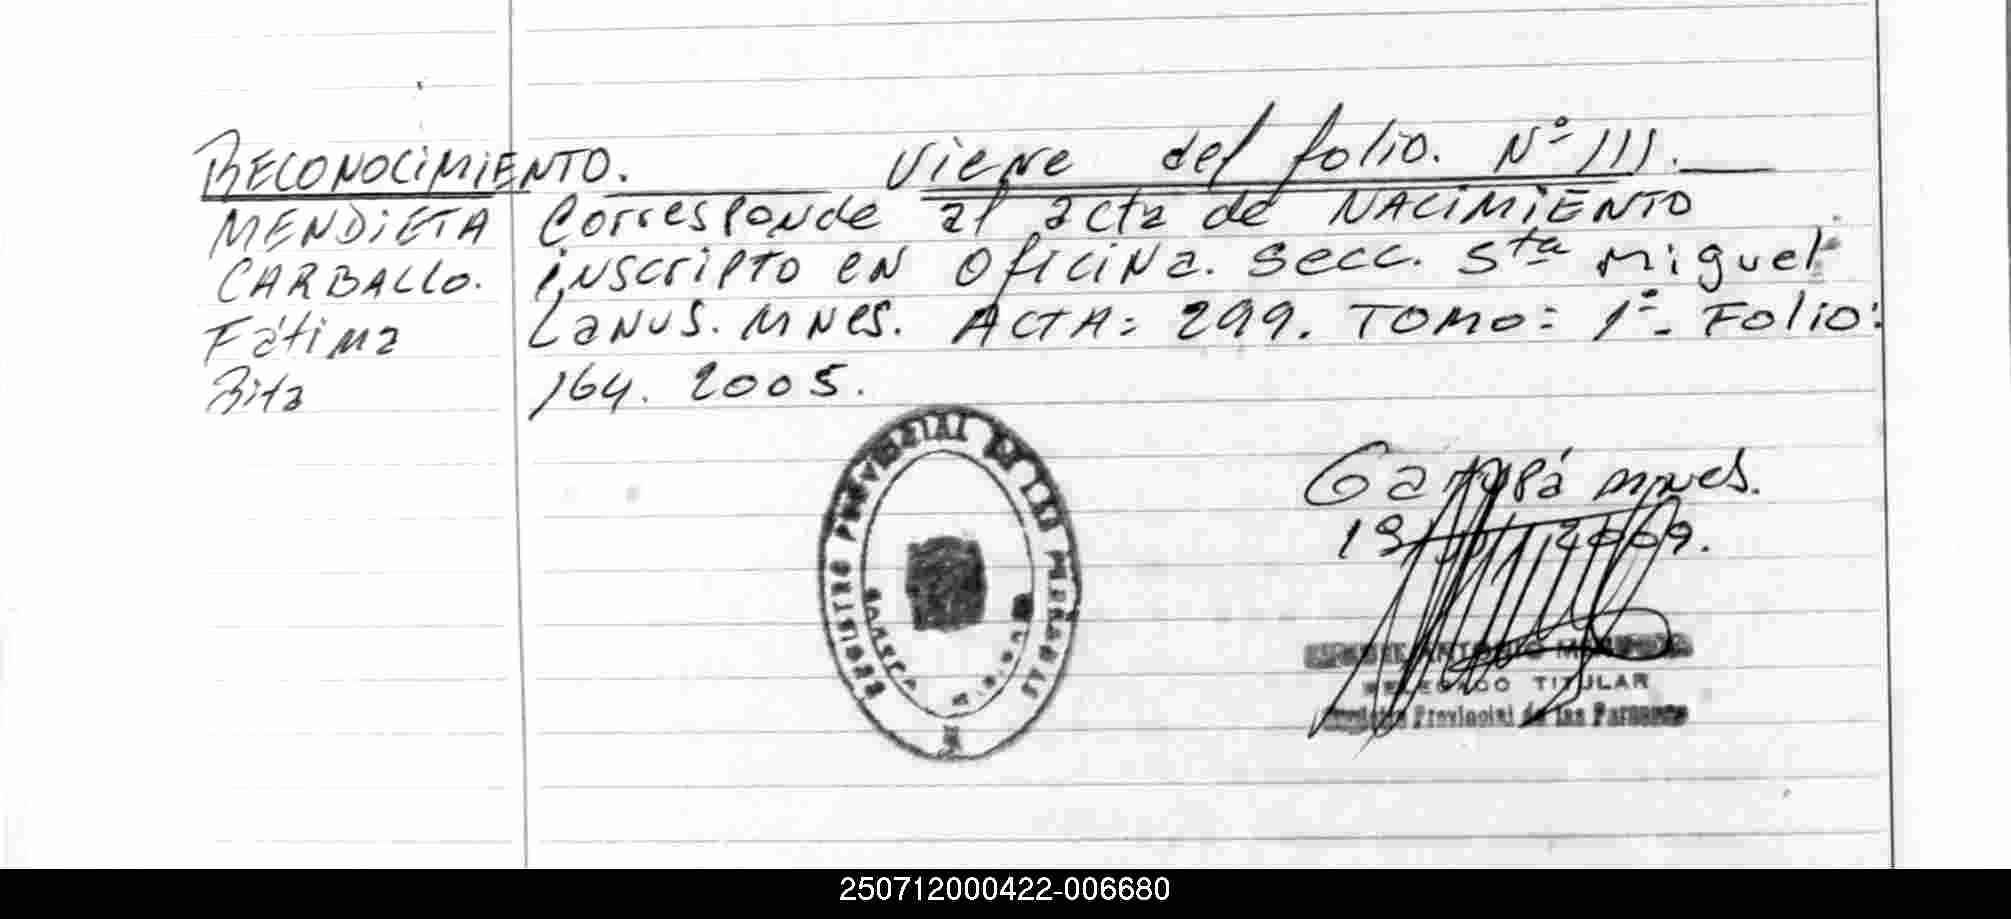 RECONOCIMIENTO. Viene del folio. Nº 111.
MENDIETA Corresponde al acta de NACIMIENTO
CARBALLO. inscripto en oficina. Secc. Sta Miguel
Fátima Lanus. Mnes. ACTA: 299. TOMO: 1º. Folio:
Rita 164. 2005.
REGISTRO PROVINCIAL DE LAS PERSONAS
Garupá Mnes.
2009.
ANTONIO
DELEGADO TITULAR
Registro Provincial de las Personas
250712000422-006680